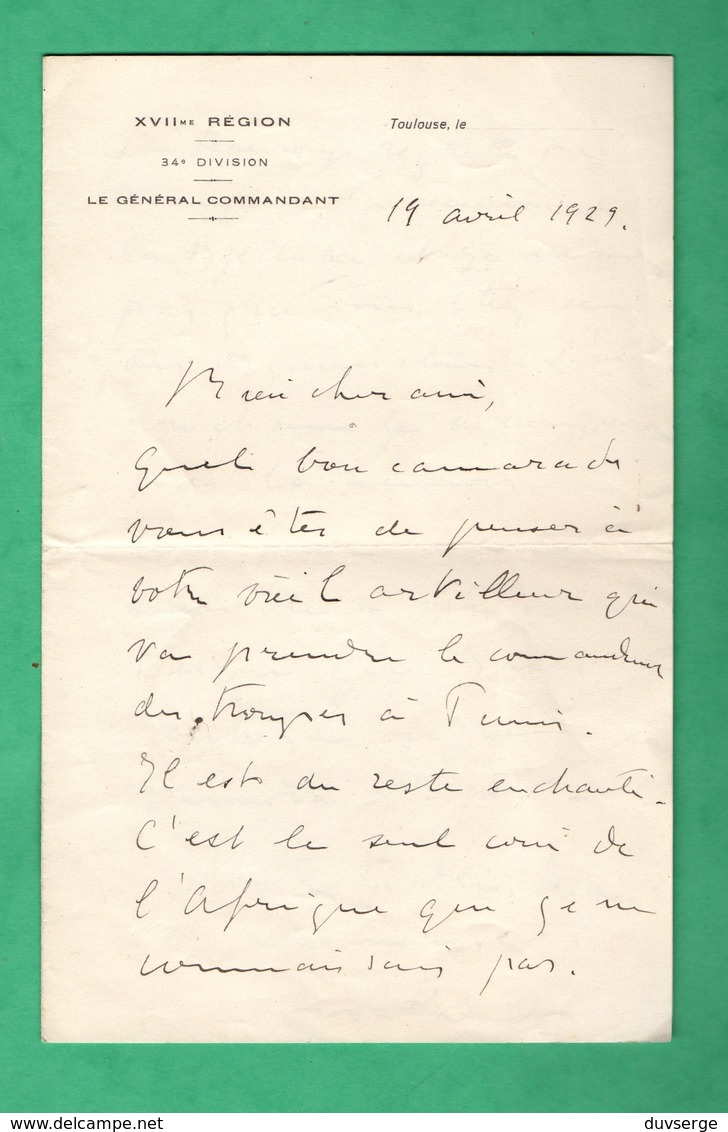 XVIIME RÉGION
34e DIVISION
LE GÉNÉRAL COMMANDANT
Toulouse, le
19 avril 1929.
Bien cher ami,
Quel bon camarade
vous êtes de penser à
votre vieil artilleur qui
va prendre le commandement
des troupes à Tunis.
Il est du reste enchanté.
C'est le seul coin de
l'Afrique que je ne
connaissais pas.
delcampe.net
duvserge